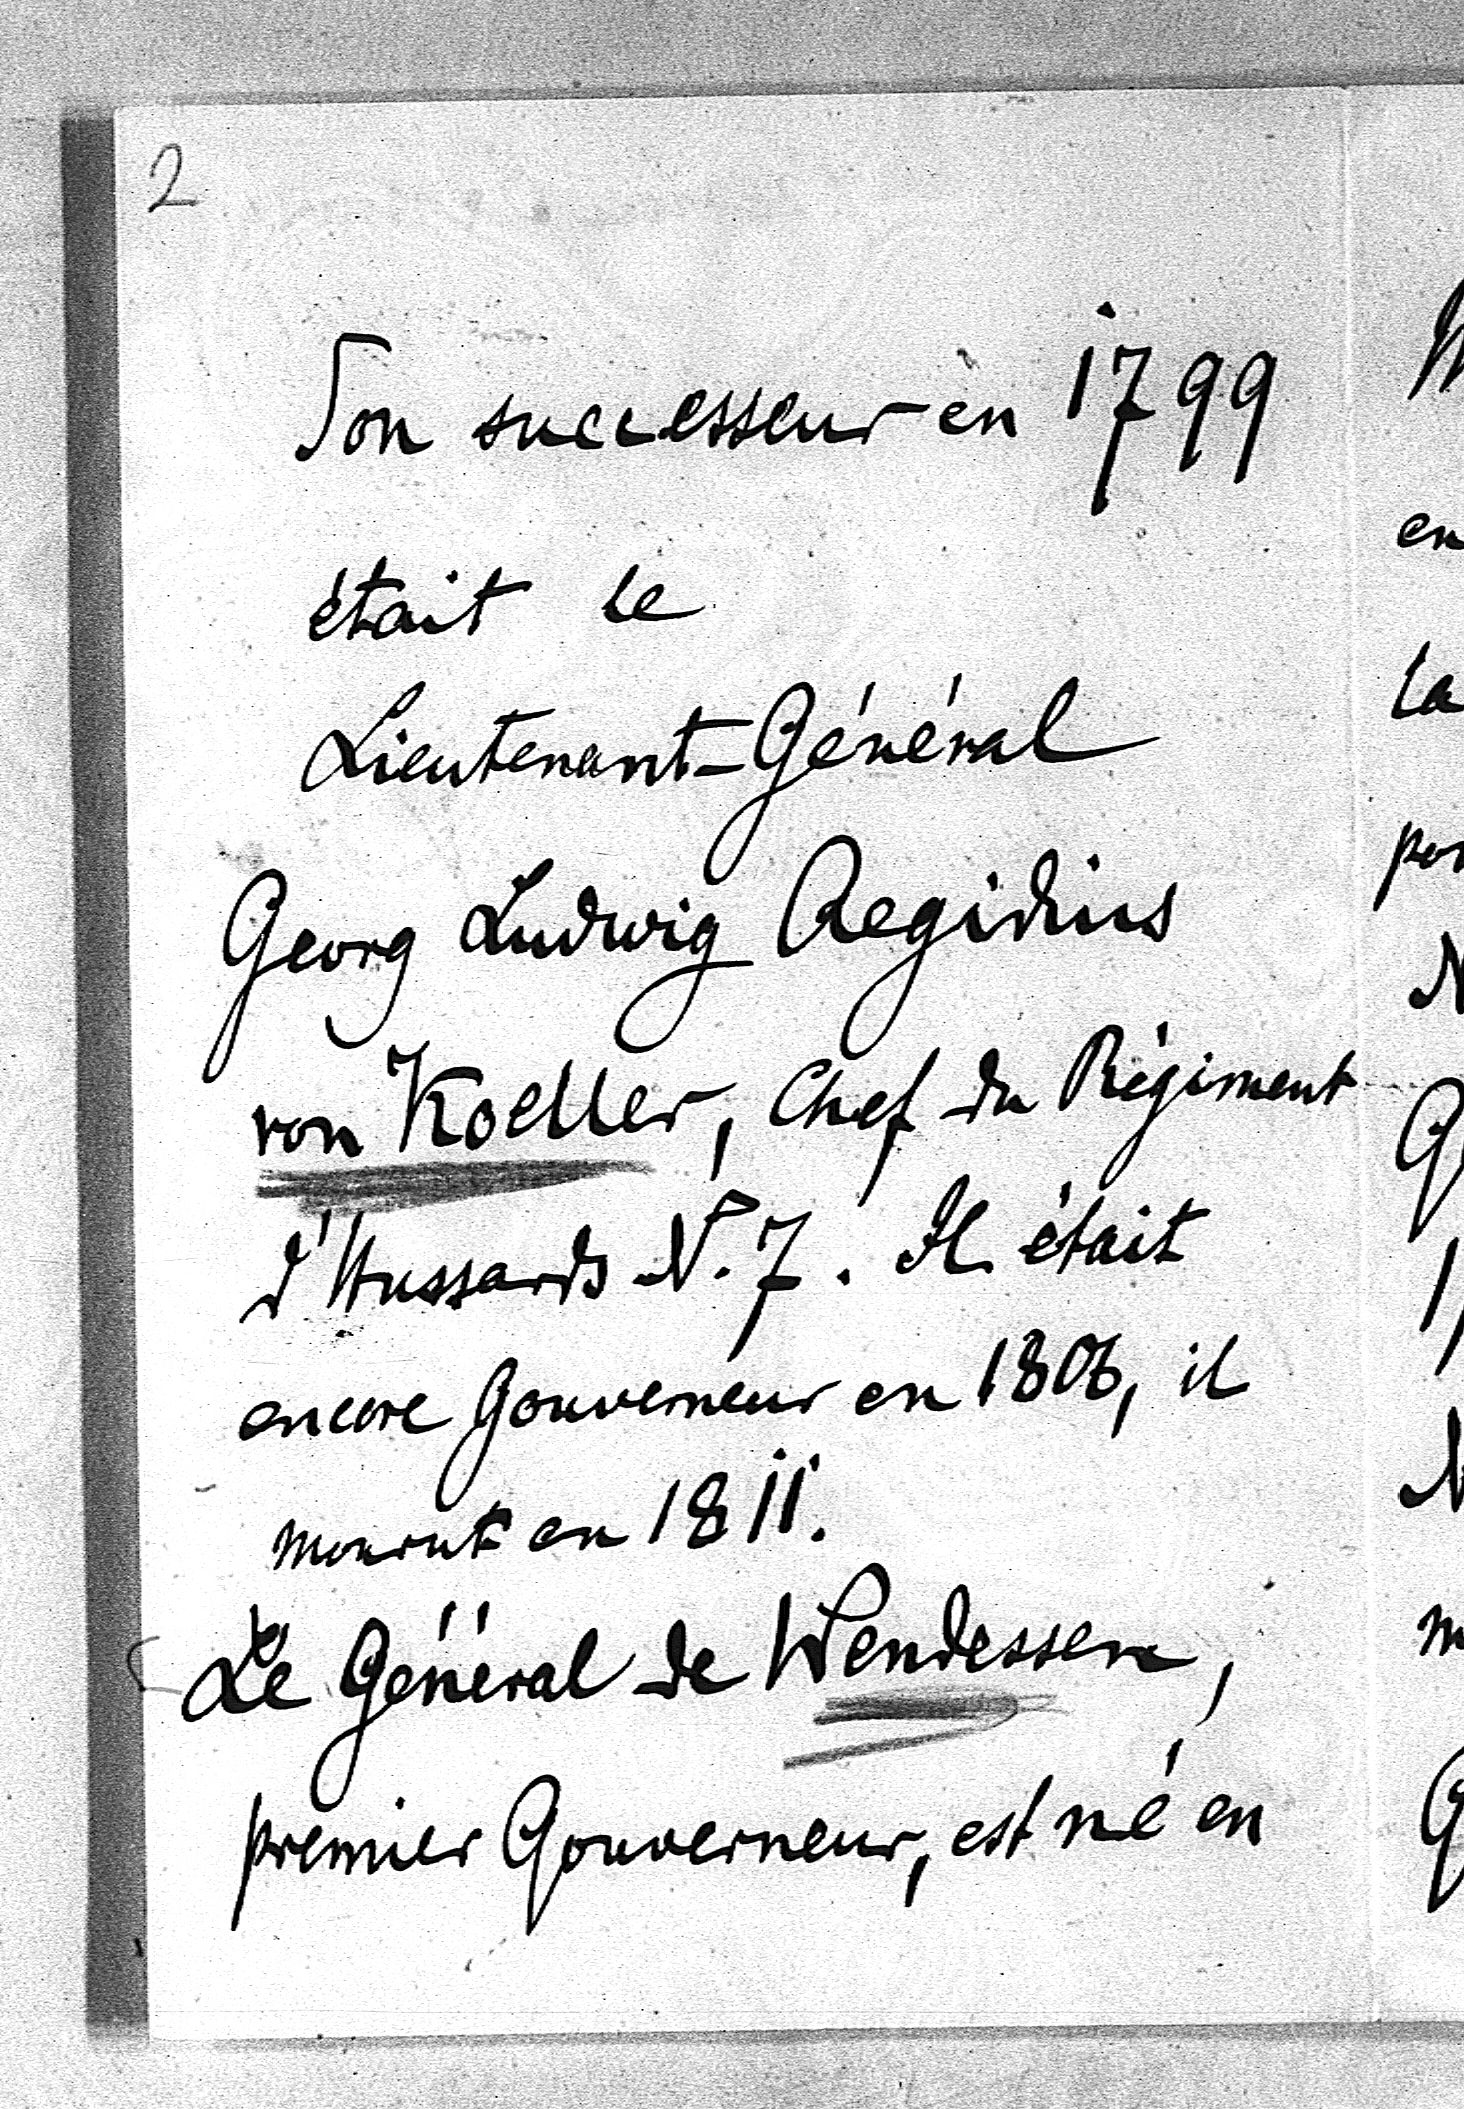 2
Son successeur en 1799
était le
Lieutenant-Général
Georg Ludwig Aegidius
von Koeller, Chef du Régiment
d'Hussards N. 7. Il était
encore Gouverneur en 1806, il
mourut en 1811.
Le Général de Wendessen,
premier Gouverneur, est né en